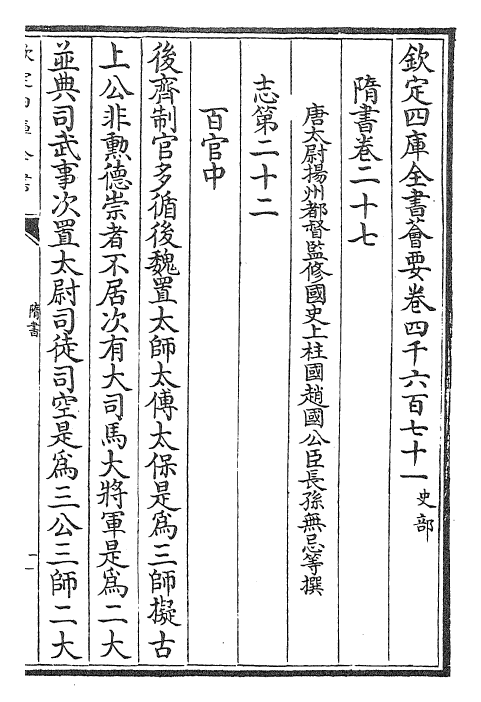 欽定四庫全書薈要卷四千六百七十一 史部
隋書卷二十七
唐太尉揚州都督監修國史上柱國趙國公臣長孫無忌等撰
志第二十二
百官中
後齊制官多循後魏置太師太傅太保是為三師擬古
上公非勲德崇者不居次有大司馬大將軍是為二大
並典司武事次置太尉司徒司空是為三公三師二大
隋書
一